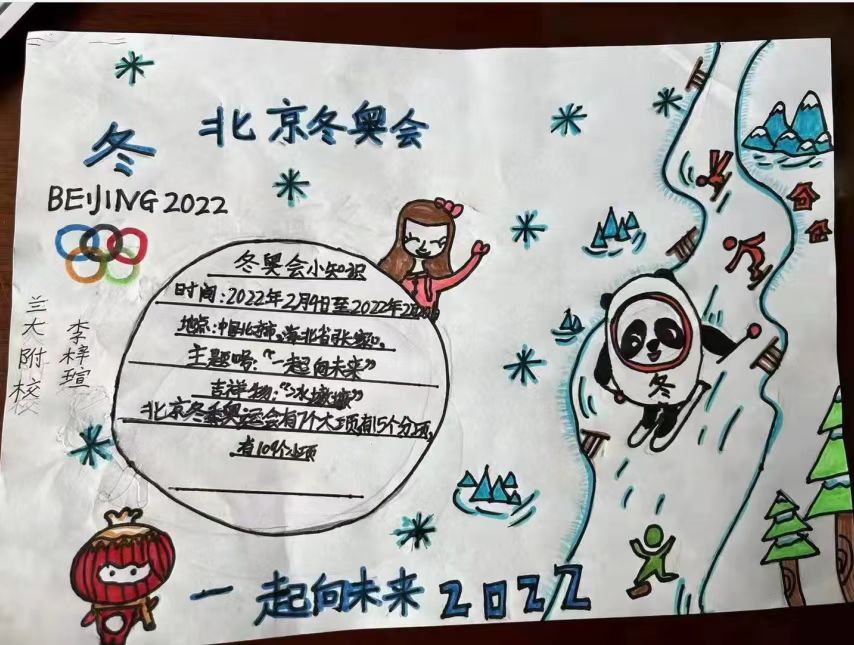 北京冬奥会
冬
BEIJING 2022
兰大附校
李梓瑄
冬奥会小知识
时间:2022年2月4日至2022年2月
地点:中国北京市,河北省张家口。
主题口号:“一起向未来”
吉祥物:“冰墩墩”
北京冬季奥运会有7个大项,有15个分项,
有109个小项
冬
一起向未来2022